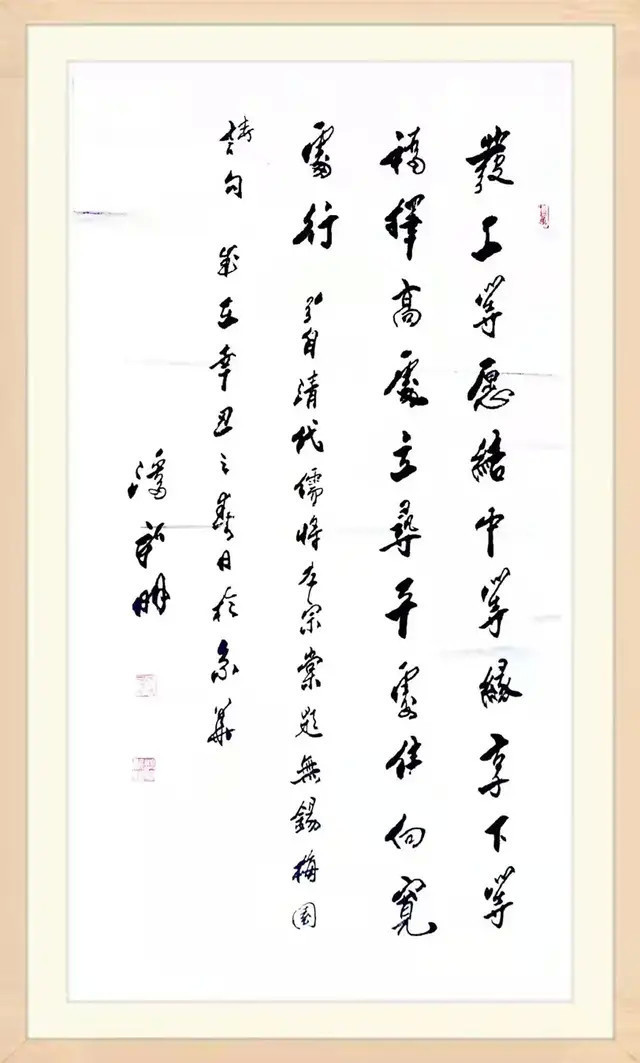 發上等愿結中等緣享下等
福擇高處立尋平處住向寬
處行 引自清代儒將左宗棠題無錫梅園
詩句 歲在辛丑之春日於京華
潘明